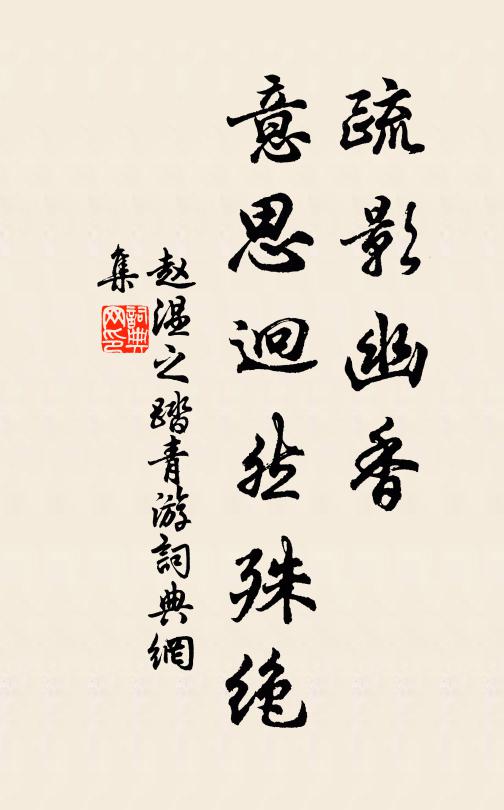 疏影幽香
意思迥然殊绝
赵温之踏青游詞典網
集
詞典
网印